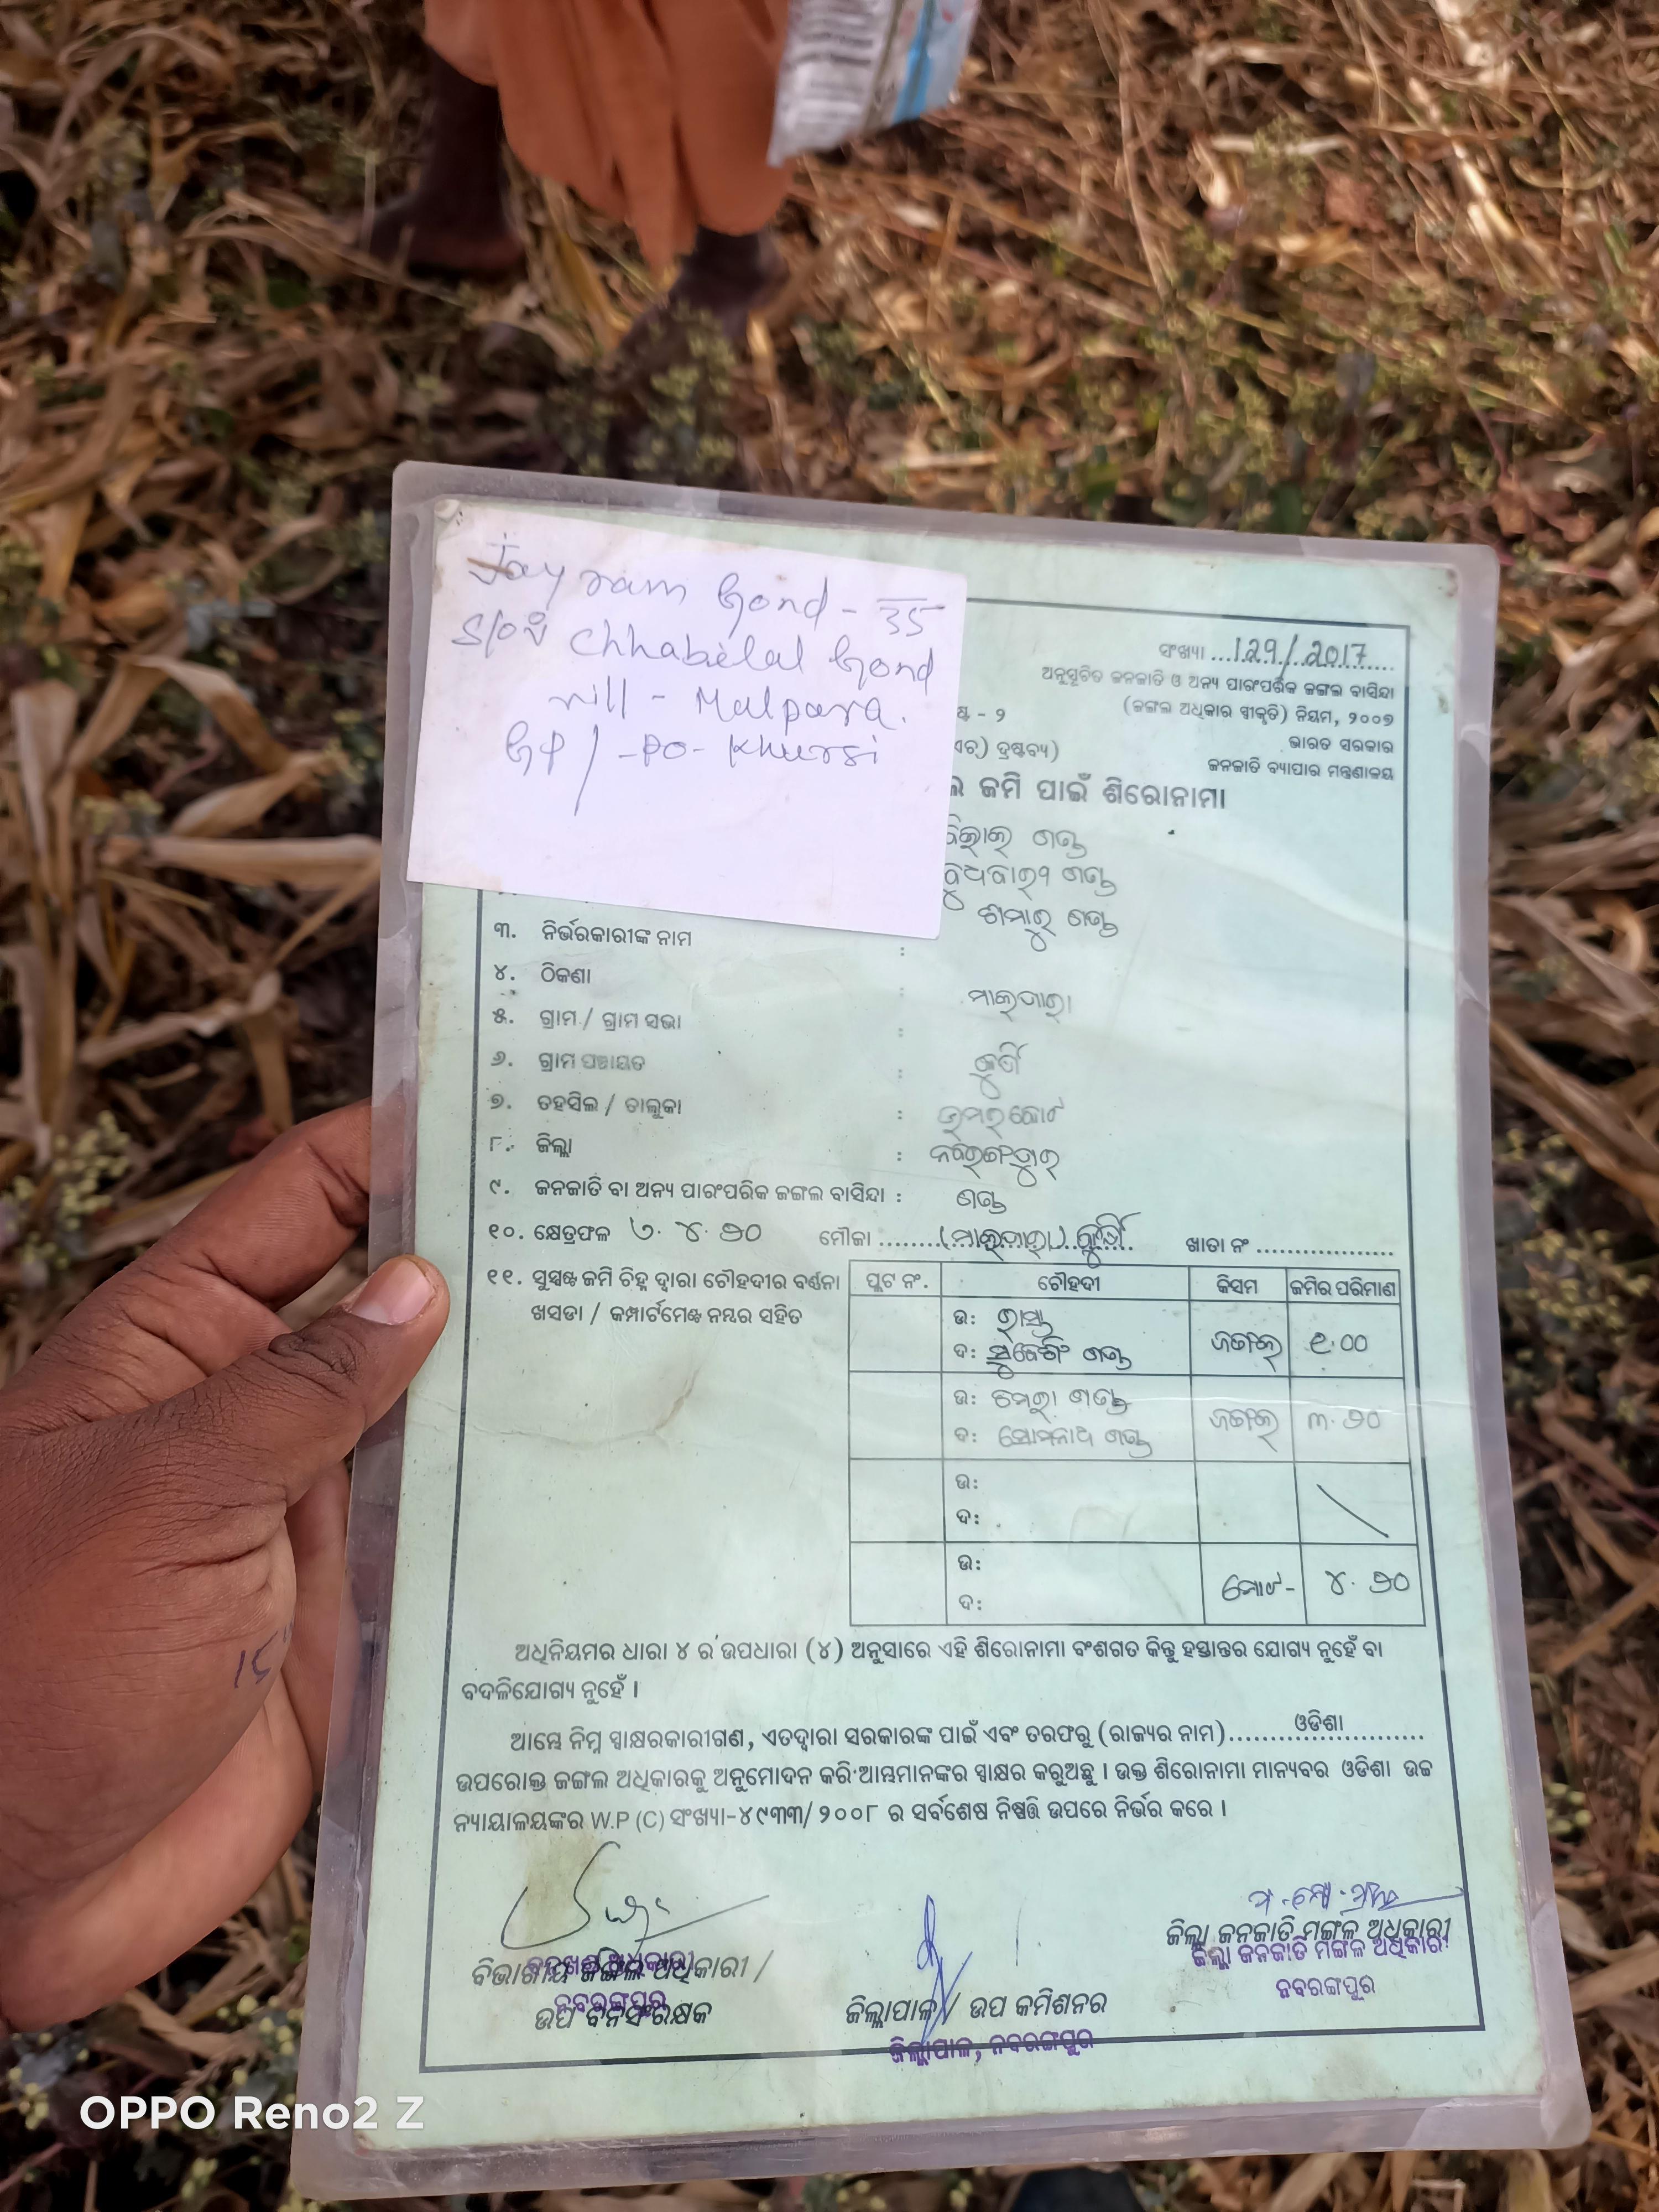 Jayram Gond - 35
S/o Chhabilal Gond
vill - Malpara.
GP / - PO - Khursi
ସଂଖ୍ୟା ...129/2017
ଅନୁସୂଚିତ ଜନଜାତି ଓ ଅନ୍ୟ ପାରଂପରିକ ଜଙ୍ଗଲ ବାସିନ୍ଦା
(ଜଙ୍ଗଲ ଅଧିକାର ସ୍ୱୀକୃତି) ନିୟମ, ୨୦୦୭
- ୨
ଭାରତ ସରକାର
ଏଚ୍) ଦ୍ରଷ୍ଟବ୍ୟ)
ଜନଜାତି ବ୍ୟାପାର ମନ୍ତ୍ରଣାଳୟ
ଜମି ପାଇଁ ଶିରୋନାମା
ଗଣ୍ଡ
ଗଣ୍ଡ
୩. ନିର୍ଭରକାରୀଙ୍କ ନାମ : ଗଣ୍ଡ
୪. ଠିକଣା :
୫. ଗ୍ରାମ / ଗ୍ରାମ ସଭା : ମାଲ୍‌ପାରା
୬. ଗ୍ରାମ ପଞ୍ଚାୟତ : କୁର୍ସି
୭. ତହସିଲ / ତାଲୁକା : ଉମରକୋଟ
୮. ଜିଲ୍ଲା : ନବରଙ୍ଗପୁର
୯. ଜନଜାତି ବା ଅନ୍ୟ ପାରଂପରିକ ଜଙ୍ଗଲ ବାସିନ୍ଦା : ଗଣ୍ଡ
୧୦. କ୍ଷେତ୍ରଫଳ ୪.୬୦ ମୌଜା ........(ମାଲ୍‌ପାରା) କୁର୍ସି ଖାତା ନଂ ..................
୧୧. ସୁସ୍ପଷ୍ଟ ଜମି ଚିହ୍ନ ଦ୍ୱାରା ଚୌହଦୀର ବର୍ଣ୍ଣନା
ଖସଡା / କମ୍ପାର୍ଟମେଣ୍ଟ ନମ୍ବର ସହିତ
ପ୍ଲଟ ନଂ. ଚୌହଦୀ କିସମ ଜମିର ପରିମାଣ
ଉ: ରାସ୍ତା
ଦ: ଗଣ୍ଡ ଜଙ୍ଗଲ ୧.୦୦
ଉ: ଗଣ୍ଡ
ଦ: ସୋମନାଥ ଗଣ୍ଡ ଜଙ୍ଗଲ ୩.୬୦
ଉ:
ଦ:
ଉ:
ଦ: ମୋଟ- ୪.୬୦
ଅଧିନିୟମର ଧାରା ୪ ର ଉପଧାରା (୪) ଅନୁସାରେ ଏହି ଶିରୋନାମା ବଂଶଗତ କିନ୍ତୁ ହସ୍ତାନ୍ତର ଯୋଗ୍ୟ ନୁହେଁ ବା
ବଦଳିଯୋଗ୍ୟ ନୁହେଁ ।
ଆମ୍ଭେ ନିମ୍ନ ସ୍ୱାକ୍ଷରକାରୀଗଣ, ଏତଦ୍ଦ୍ୱାରା ସରକାରଙ୍କ ପାଇଁ ଏବଂ ତରଫରୁ (ରାଜ୍ୟର ନାମ)........ଓଡିଶା........
ଉପରୋକ୍ତ ଜଙ୍ଗଲ ଅଧିକାରକୁ ଅନୁମୋଦନ କରି ଆମ୍ଭମାନଙ୍କର ସ୍ୱାକ୍ଷର କରୁଅଛୁ । ଉକ୍ତ ଶିରୋନାମା ମାନ୍ୟବର ଓଡିଶା ଉଚ୍ଚ
ନ୍ୟାୟାଳୟଙ୍କର W.P (C) ସଂଖ୍ୟା-୪୯୩୩/୨୦୦୮ ର ସର୍ବଶେଷ ନିଷ୍ପତ୍ତି ଉପରେ ନିର୍ଭର କରେ ।
ଜିଲ୍ଲା ଜନଜାତି ମଙ୍ଗଳ ଅଧିକାରୀ
ଜିଲ୍ଲା ଜନଜାତି ମଙ୍ଗଳ ଅଧିକାରୀ
ନବରଙ୍ଗପୁର
ବିଭାଗୀୟ ଜଙ୍ଗଲ ଅଧିକାରୀ /
ନବରଙ୍ଗପୁର
ଉପ ବନସଂରକ୍ଷକ
ଜିଲ୍ଲାପାଳ / ଉପ କମିଶନର
ଜିଲ୍ଲାପାଳ, ନବରଙ୍ଗପୁର
OPPO Reno2 Z